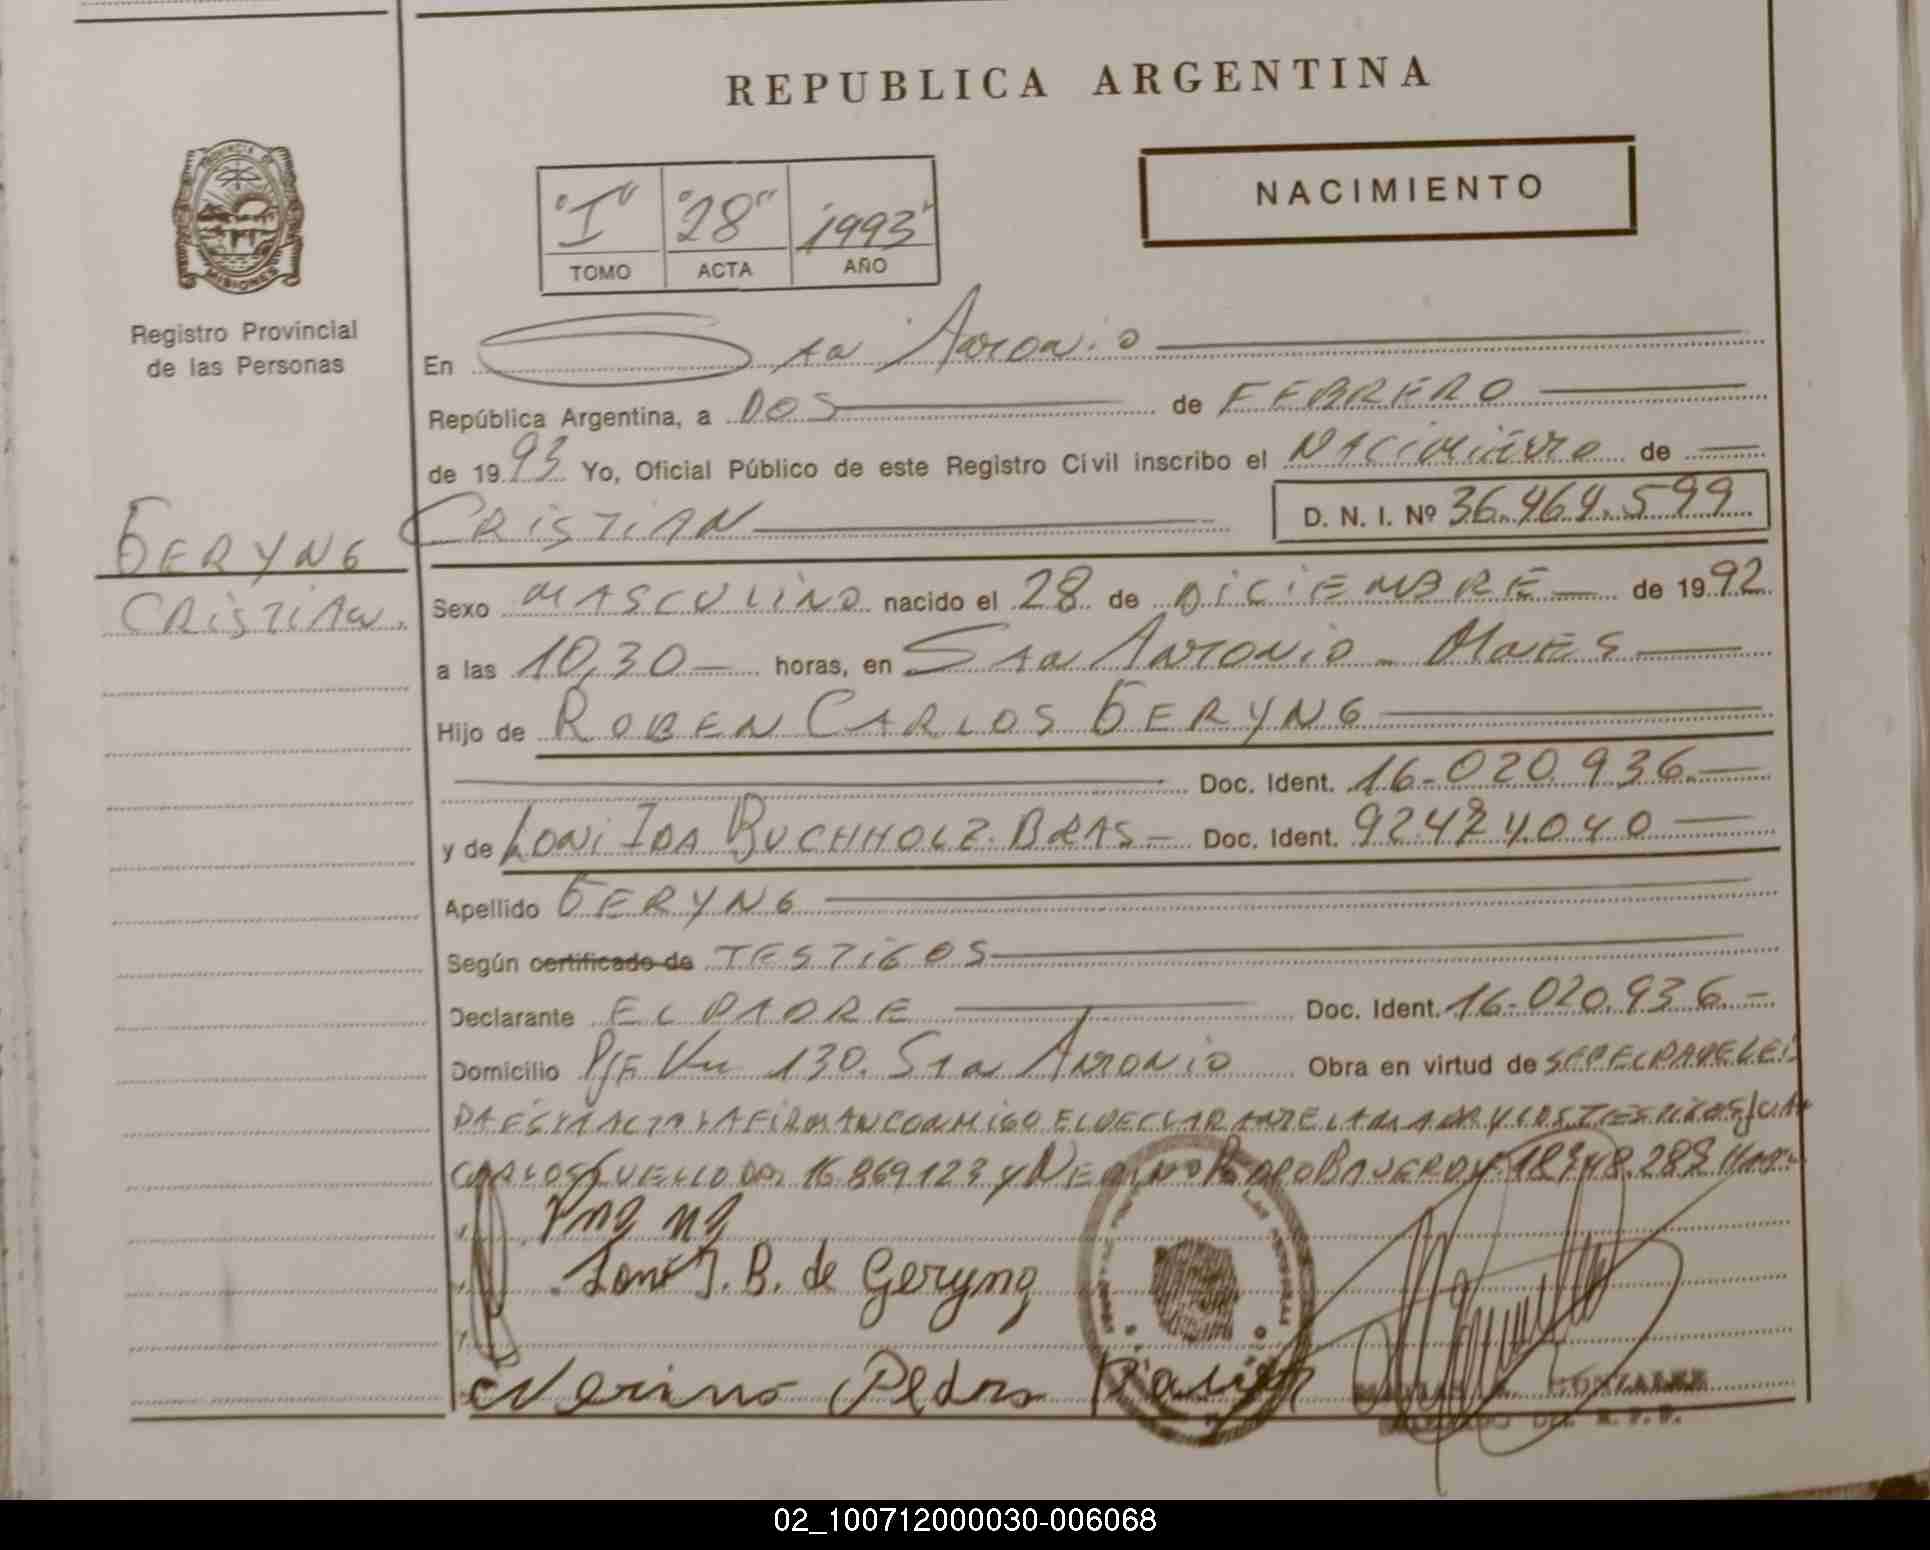 REPUBLICA ARGENTINA
NACIMIENTO
"I" "28" "1993"
TOMO ACTA AÑO
PROVINCIA DE
MISIONES
Registro Provincial
de las Personas
En San Antonio
República Argentina, a DOS de FEBRERO
de 1993 Yo, Oficial Público de este Registro Civil inscribo el Nacimiento de
CRISTIAN D. N. I. Nº 36.464.599
GERYNG
CRISTIAN.
Sexo MASCULINO nacido el 28 de DICIEMBRE de 1992
a las 10,30 horas, en San Antonio - Mnes
Hijo de ROBEN CARLOS GERYNG
Doc. Ident. 16.020.936.
y de LONI IDA BUCHHOLZ. BRAS. Doc. Ident. 92424040
Apellido GERYNG
Según certificado de TESTIGOS
Declarante EL PADRE Doc. Ident. 16.020.936
Domicilio Pje 130. San Antonio Obra en virtud de SER EL PADRE LEI
DA ESTA ACTA LA FIRMAN CONMIGO EL DECLARANTE LA MADRE Y LOS TESTIGOS JUAN
CARLOS CUELLO DNI 16.869123 y NERINO PEDRO
Loni I. B. de Geryng
Nerino Pedro
GONZALEZ
R.P.P.
02_100712000030-006068